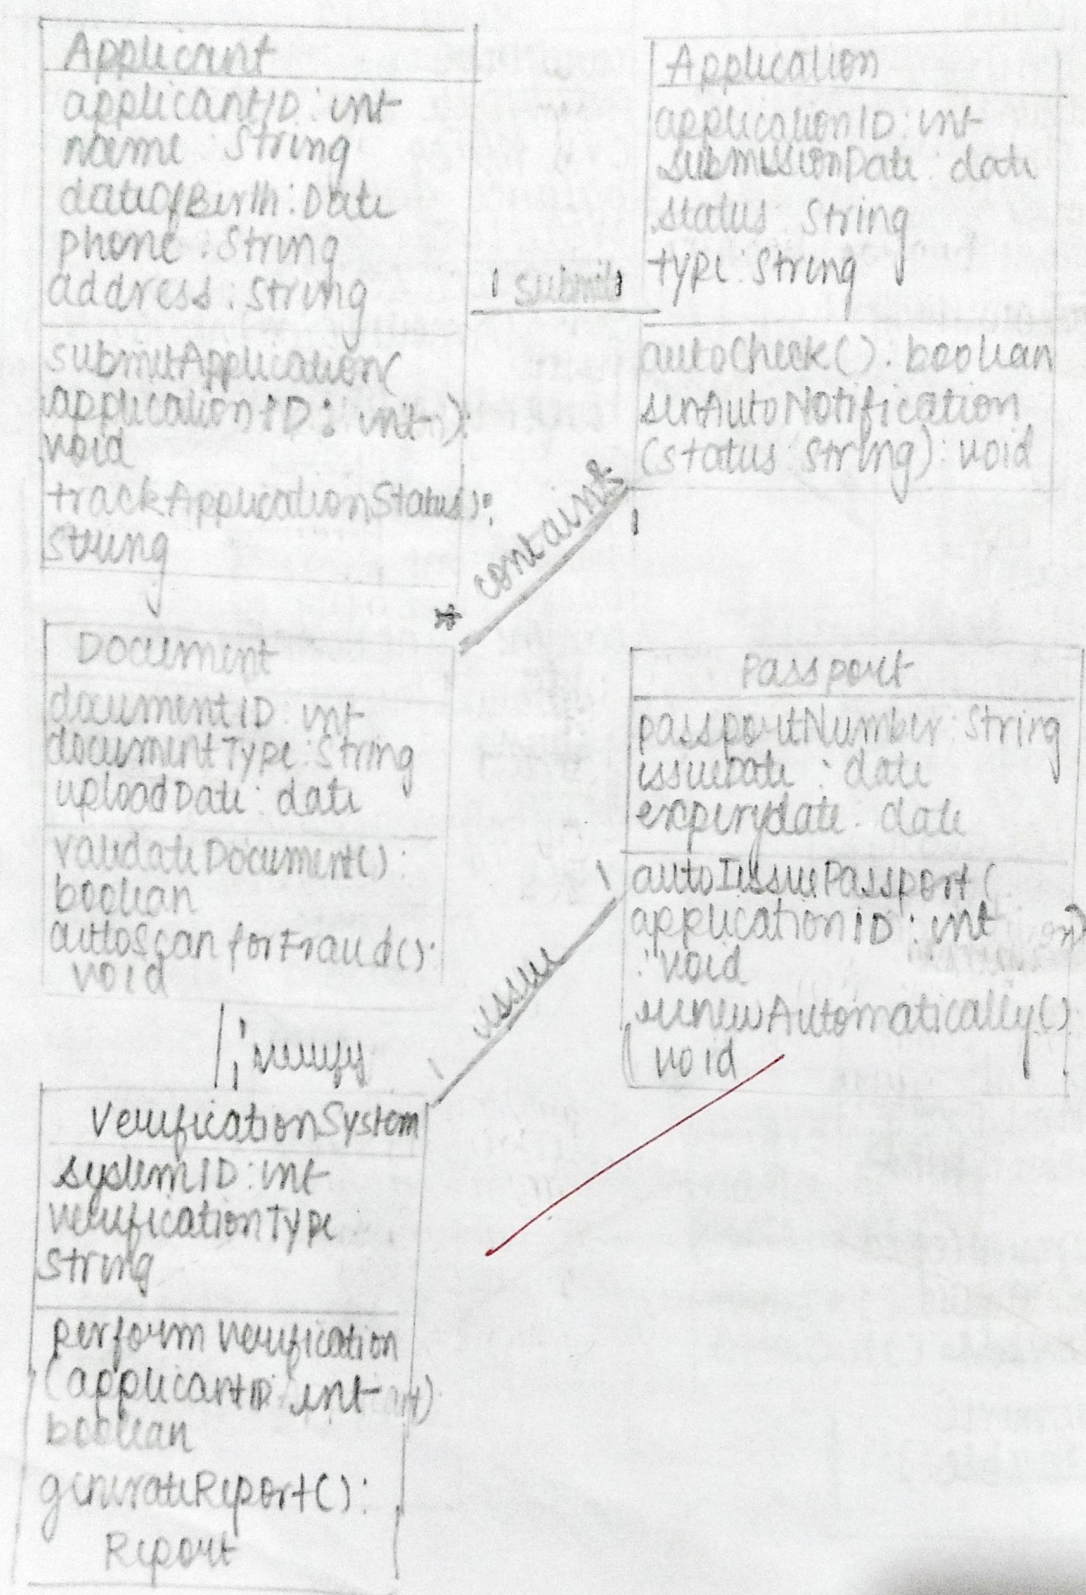 Applicant
applicantID: int
name: String
dateOfBirth: Date
phone: String
address: String
submitApplication(
applicationID: int):
void
trackApplicationStatus():
String
1 submit 1
Application
applicationID: int
submissionDate: date
status: String
type: String
autoCheck(): boolean
senAutoNotification
(status: String): void
* contains 1
Document
documentID: int
documentType: String
uploadDate: date
validateDocument():
boolean
autoScanforFraud():
void
Passport
passportNumber: String
issueDate: date
expirydate: date
autoIssuePassport(
applicationID: int
: void
renewAutomatically()
void
1 issue 1
verify
VerificationSystem
systemID: int
verificationType
String
perform verification
(applicantID: int)
boolean
generateReport():
Report